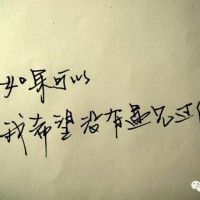 如果可以
我希望没有遇见过